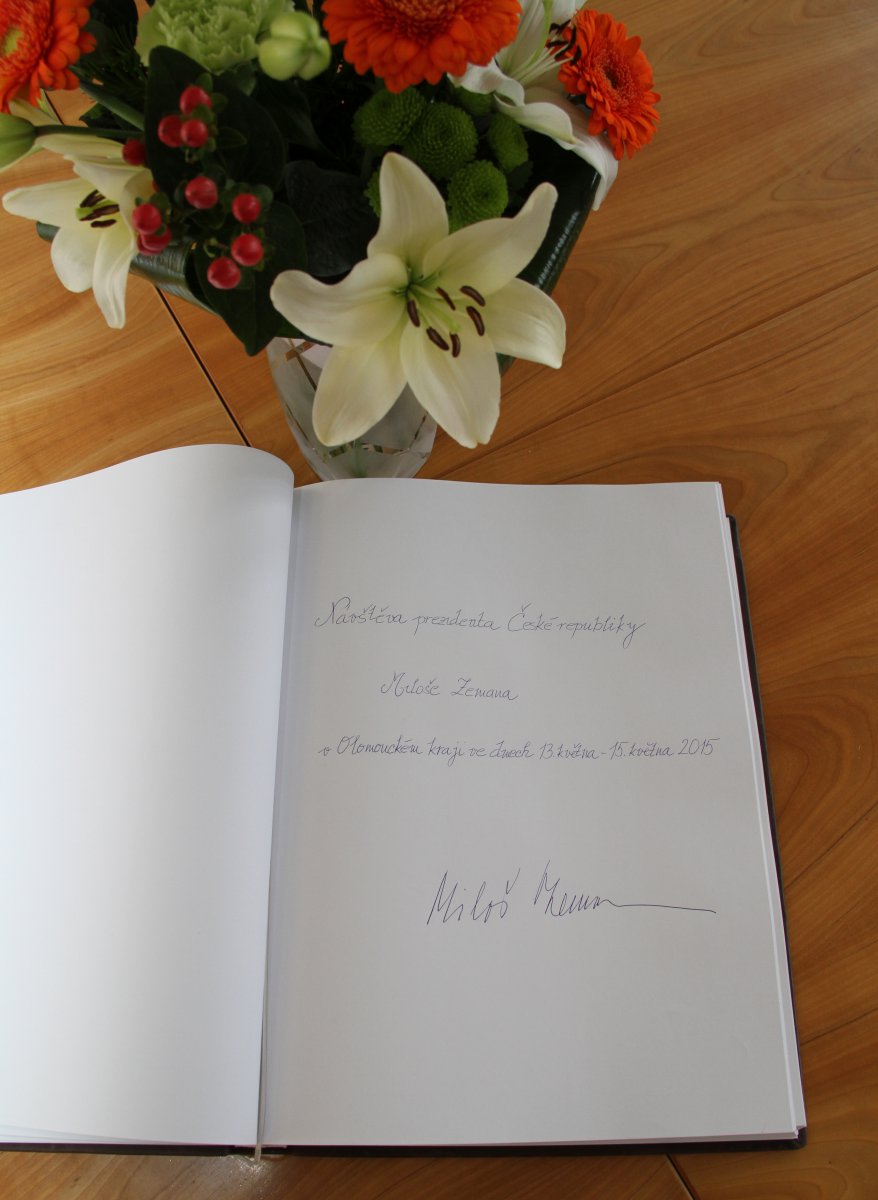 Návštěva prezidenta České republiky
Miloše Zemana
v Olomouckém kraji ve dnech 13. května - 15. května 2015
Miloš Zeman